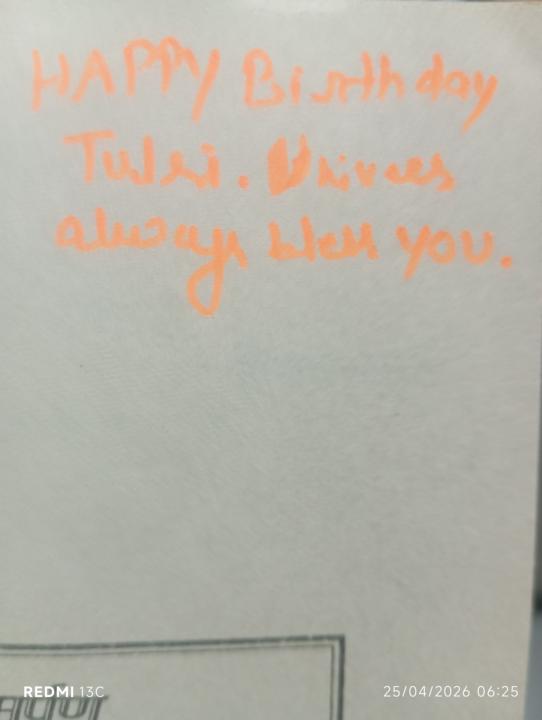 HAPPY Birthday
Tulsi. Univers
always bless you.
REDMI 13C
25/04/2026 06:25